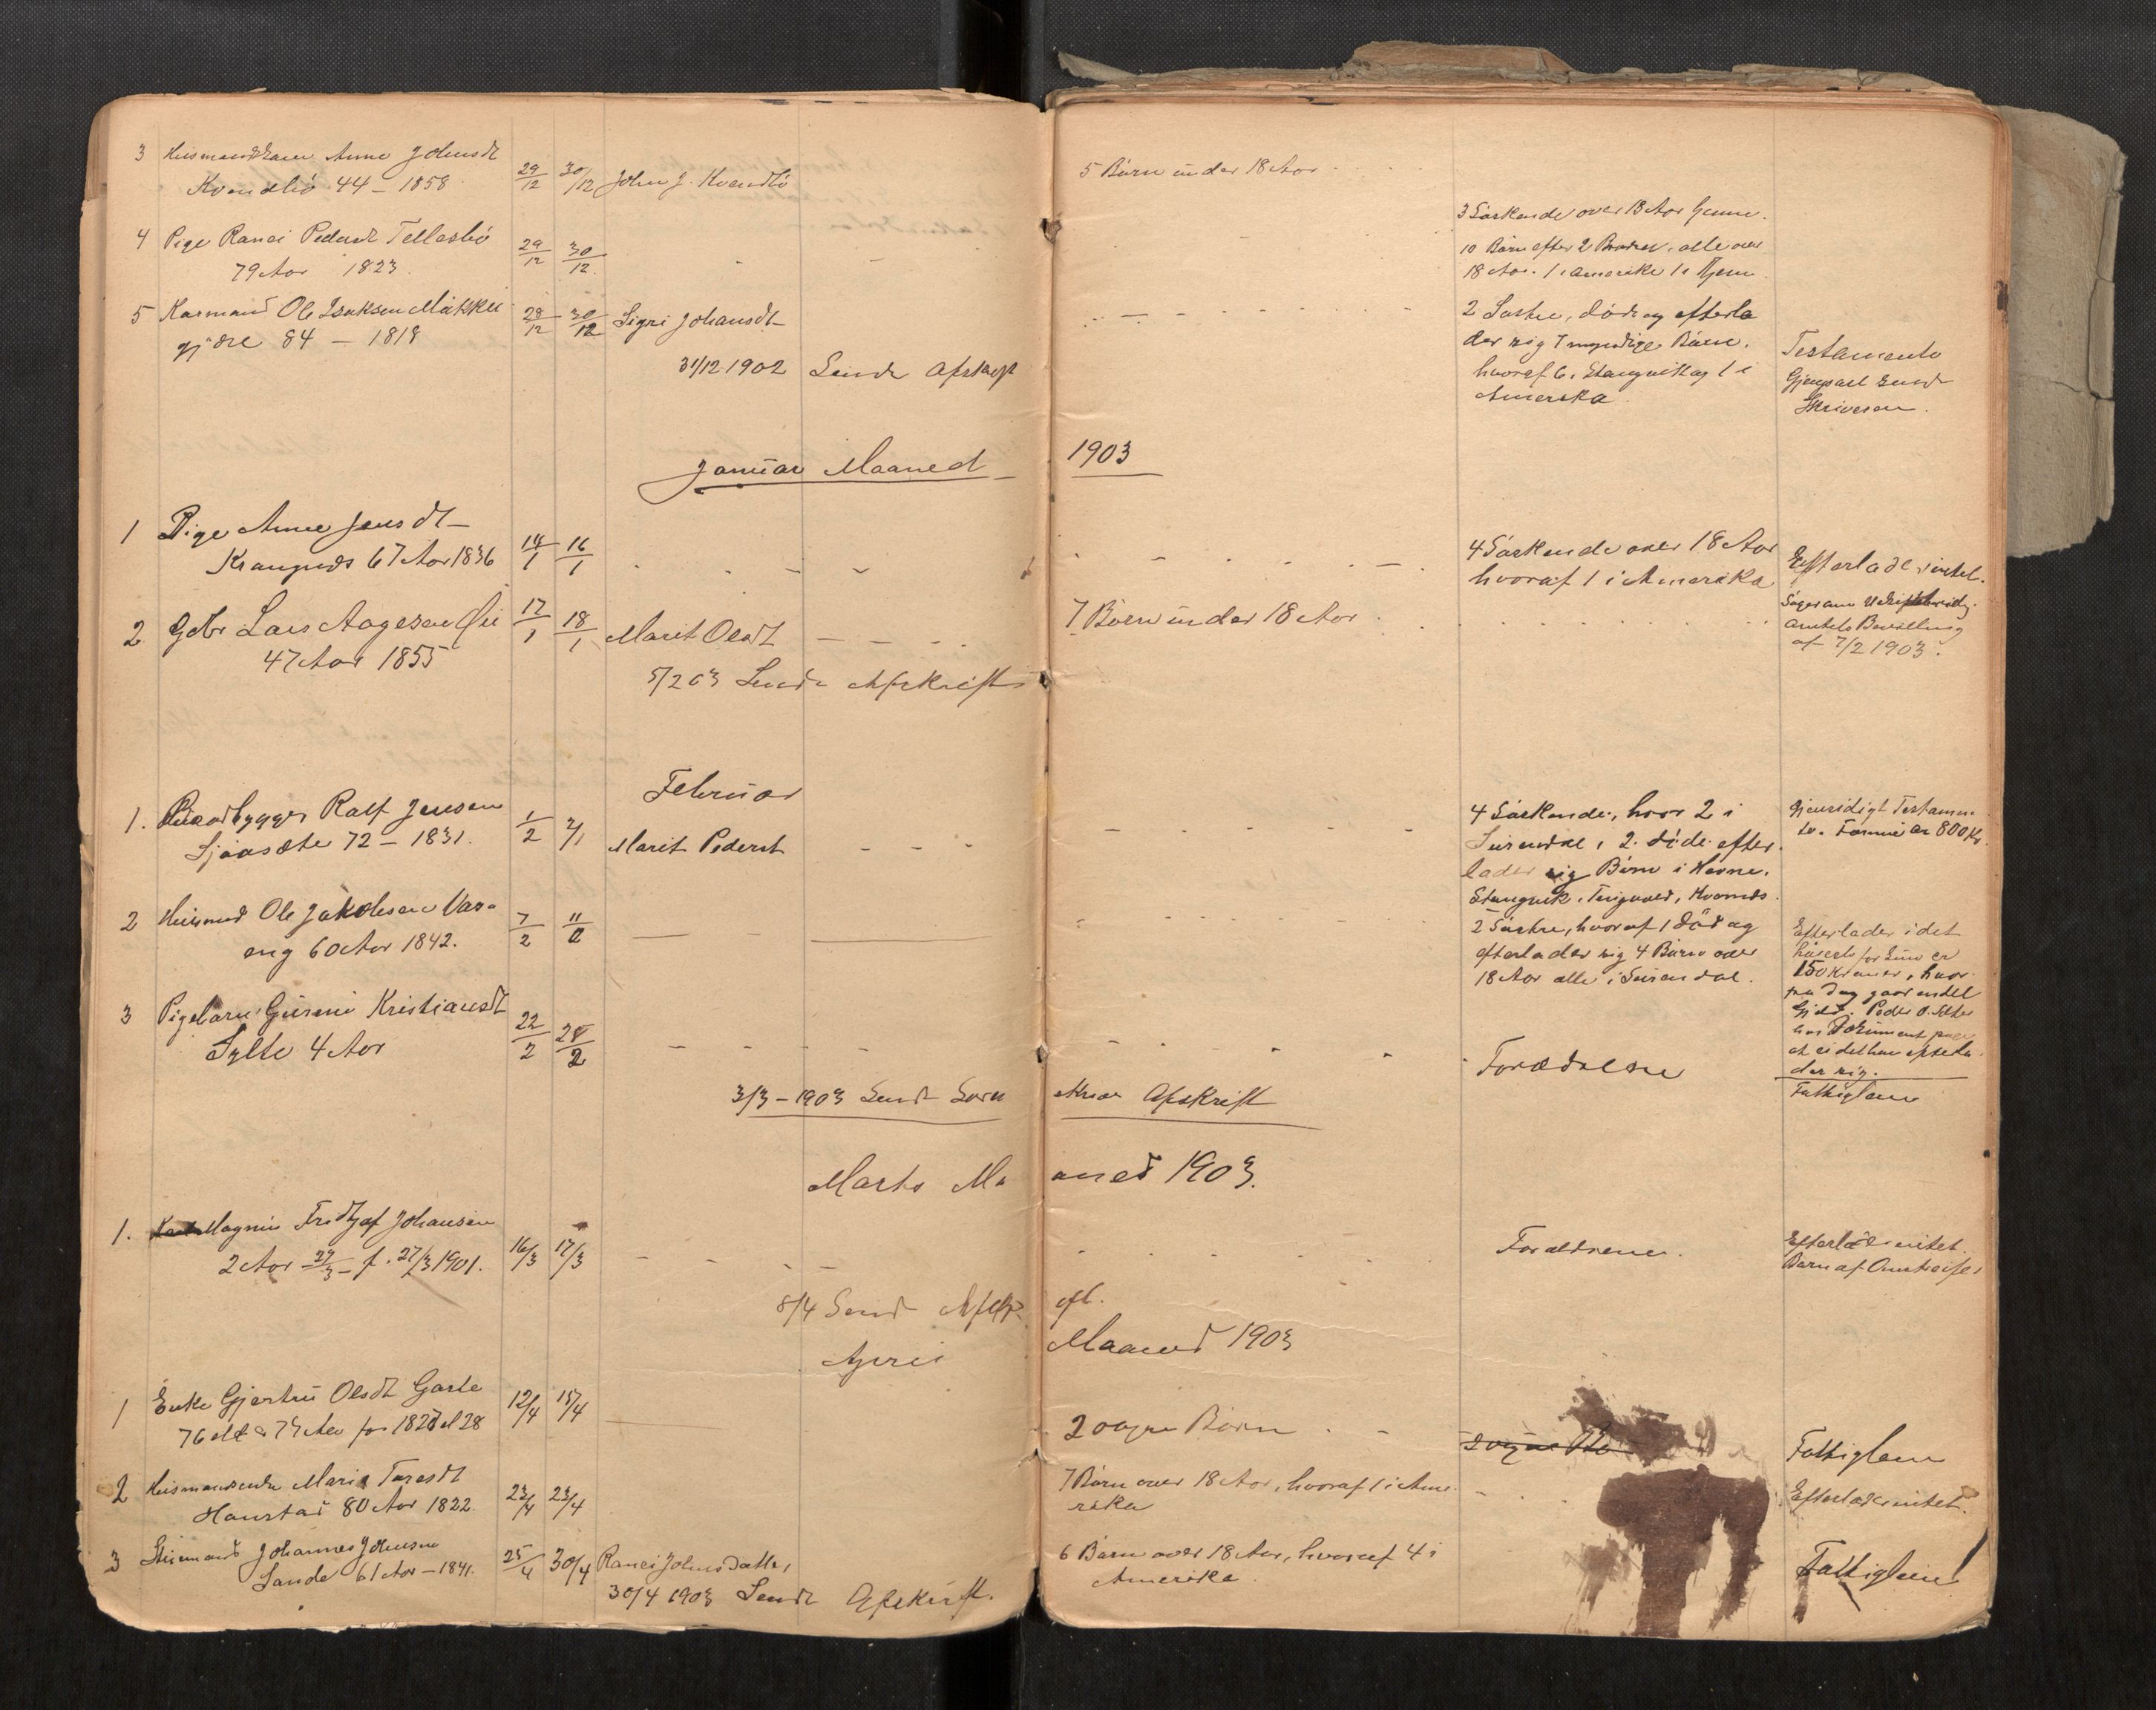 3 Husmandskane Anne Johnsdt
Kvendbö 44 – 1858
29/12 30/12 John J. Kvendbö
5 Börn under 18 Aar
4 Pige Ranei Pedersdt Tellesbö
79 Aar 1823
29/12 30/12
3 Söskende over 18 Aar hjeme.
10 Börn efter 2 Brödre, alle over
18 Aar. 1 i Amerika 1 i Hjem
5 Kaarmand Ole Isaksen
gjære 84 – 1818
28/12 30/12 Sigri Johansdt
2 Söstre, död og efterla
der sig 7 myndige Börn,
hvoraf 6 i Stangvik og 1 i
Amerika
Testamente
Gjenpart sendt
Skriveren.
31/12 1902 Sendt Afskrift
Januar Maaned 1903
1 Pige Anne Jensdt
67 Aar 1836
14/1 16/1
4 Söskende over 18 Aar
hvoraf 1 i Amerika
Efterlader intet.
2 Gbr Lars Aagesen Öie
47 Aar 1855
17/1 18/1 Marit Olsdt
7 Börn under 18 Aar
Söger om Uskiftet
Amtets Bevilling
af 7/2 1903.
5/2 03 Sendt Afskrift
Februar
1. Ralf Jensen
Sjaasæte 72 – 1831.
1/2 Marit Pedersdt
4 Söskende, hvor 2 i
Surendal, 2 döde efter
lader sig Börn i Hevne,
Stangvik, Tingvold,
Gjensidigt Testamen
te. Formue er 800 Kr.
2 Husmd Ole Jakobsen Vaa-
eng 60 Aar 1842.
7/2 11/2
2 Söstre, hvoraf 1 död og
efterlader sig 4 Börn over
18 Aar alle i Surendal.
Efterlader idet
for Enn er
150 Kroner, hvor-
paa dog gaar endel
Gjæld. Peder O. Sylte
har Dokument paa
at ei det han efterla
der sig.
3 Pigebarn Gurine Kristiansdt
Sylte 4 Aar
22/2 28/2
Forældrene
Fattiglem
3/3 – 1903 Sendt Soren
skriver Afskrift
Marts Maaned 1903.
1. Magnus Fridtjof Johansen
2 Aar 27/3 f. 27/3 1901.
16/3 17/3
Forældrene.
Efterlader intet.
Barn af Omstreifer
8/4 Sendt Afskrift.
April Maaned 1903
1 Enke Gjertru Olsdt Garte
76 el 75 Aar for 1827 el 28
12/4 15/4
2 Börn
Fattiglem
2 Husmandsenke Marit Toresdt
Haunstad 80 Aar 1822.
23/4 23/4
7 Börn over 18 Aar, hvoraf 1 i Ame-
rika
Efterlader intet.
3 Husmand Johannes Johnsen
Sande 61 Aar – 1841.
25/4 30/4 Ranei Johnsdatter
6 Börn over 18 Aar, hvoraf 4 i
Amerika
Fattiglem
30/4 1903 Sendt Afskrift.